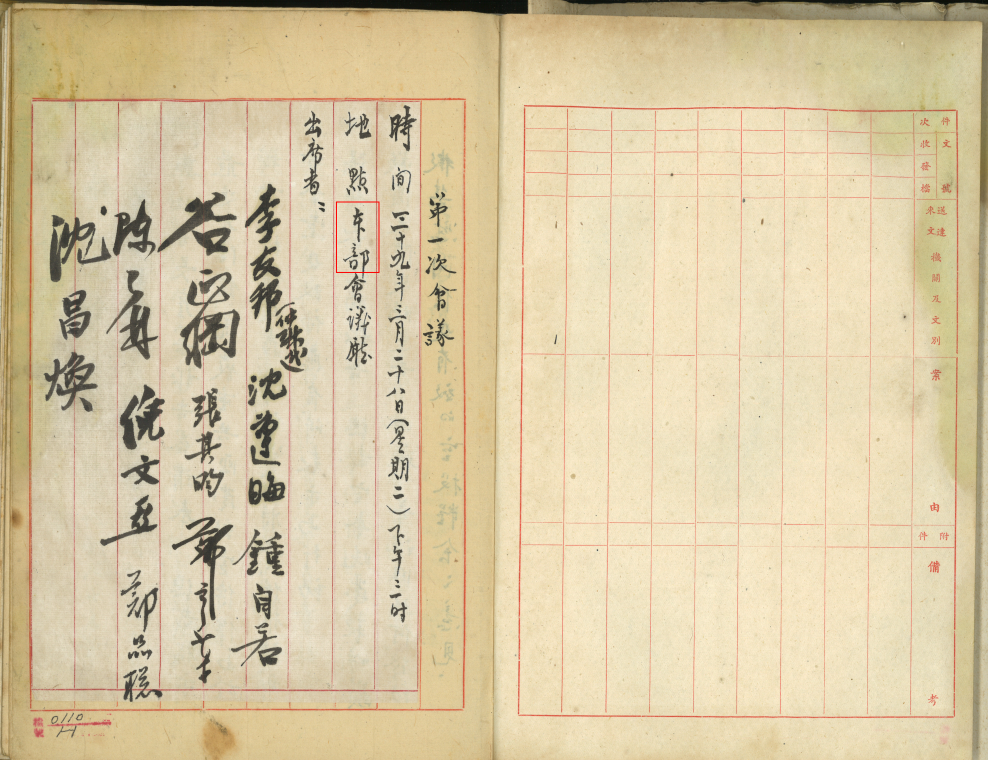 件次
文號
收發檔
送達
來文
機關及文別
案由
附件
備考
第一次會議
時間 三十九年三月二十八日(星期二)下午三時
地點 本部會議廳
出席者：
李友邦 沈遵晦 鍾自若
谷正綱 張其昀 鄭彥棻
陳雪屏 倪文亞 鄭品聰
沈昌煥
0110